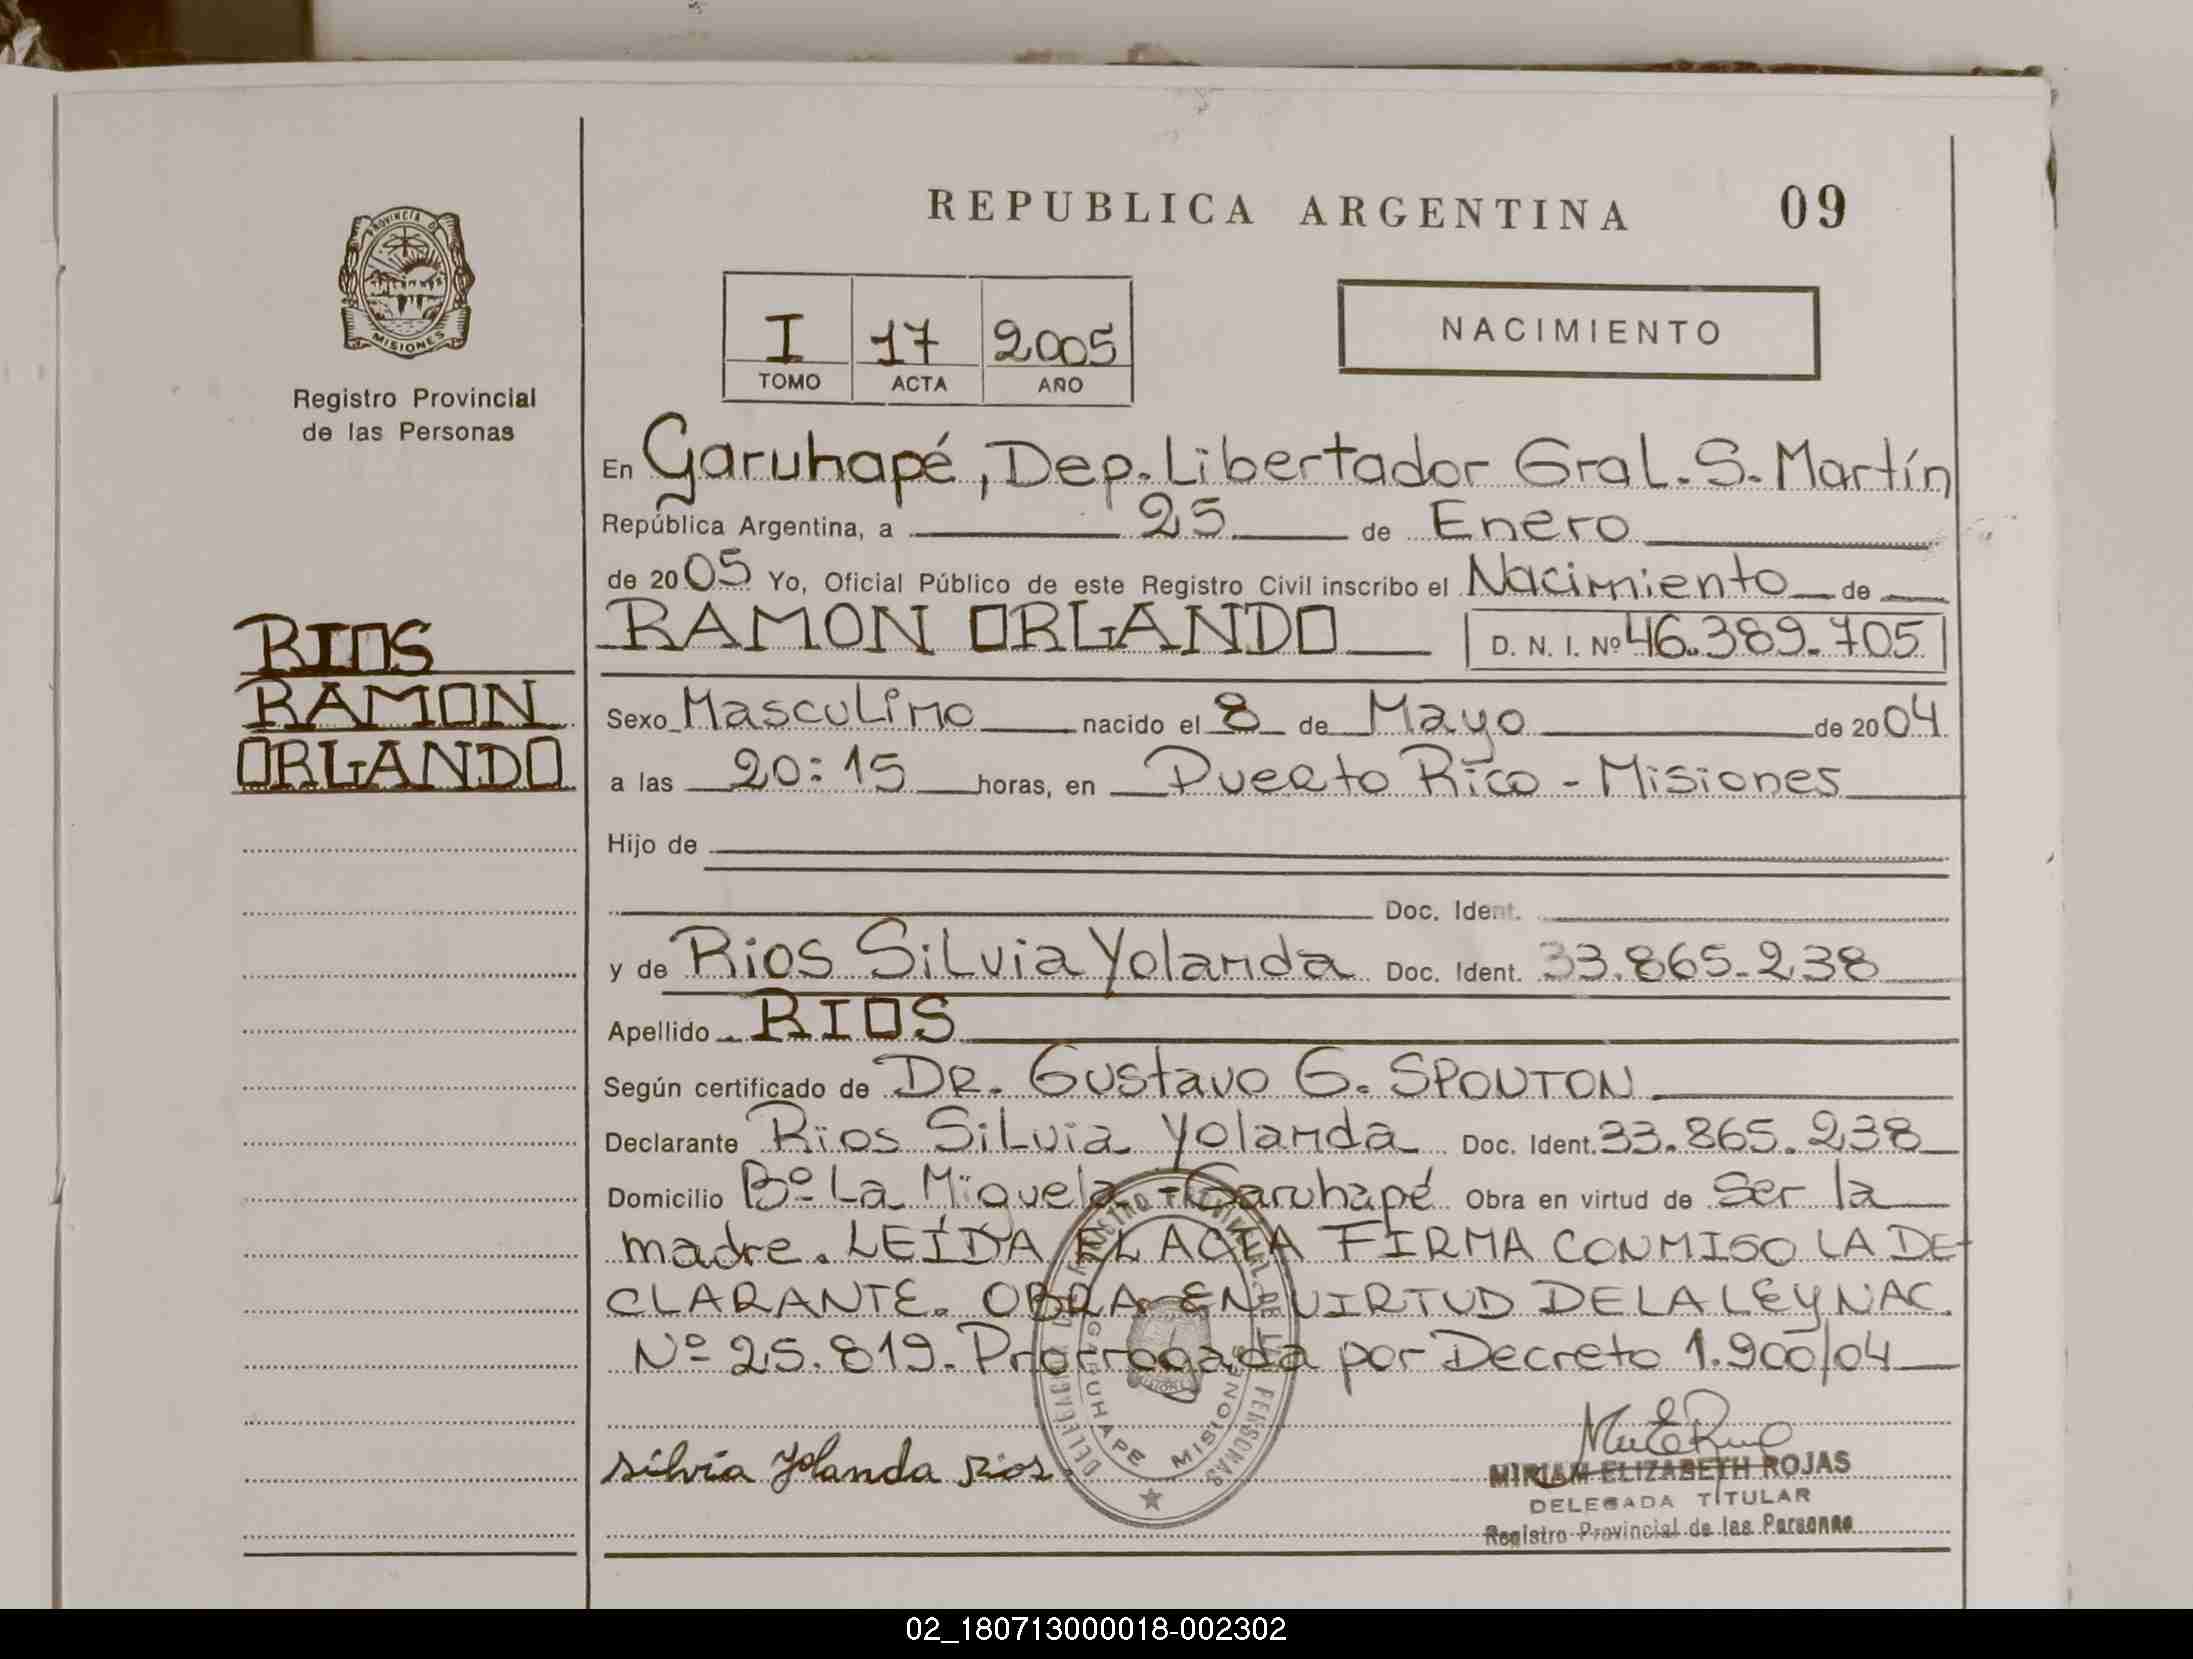 REPUBLICA ARGENTINA 09
PROVINCIA DE
MISIONES
Registro Provincial
de las Personas
I 17 2005
TOMO ACTA AÑO
NACIMIENTO
En Garuhapé, Dep. Libertador Gral. S. Martín
República Argentina, a 25 de Enero
de 2005 Yo, Oficial Público de este Registro Civil inscribo el Nacimiento de
RIOS
RAMON
ORLANDO
RAMON ORLANDO D. N. I. Nº 46.389.705
Sexo Masculino nacido el 8 de Mayo de 2004
a las 20:15 horas, en Puerto Rico - Misiones
Hijo de
Doc. Ident.
y de Rios Silvia Yolanda Doc. Ident. 33.865.238
Apellido RIOS
Según certificado de DR. Gustavo G. SPONTON
Declarante Rios Silvia Yolanda Doc. Ident. 33.865.238
Domicilio Bº La Miguela - Garuhapé Obra en virtud de Ser la
madre. LEÍDA EL ACTA FIRMA CONMIGO LA DE-
CLARANTE. OBRA EN VIRTUD DE LA LEY NAC.
Nº 25.819. Prorrogada por Decreto 1.900/04
silvia Yolanda Rios.
GARUHAPE MISIONES
MIRIAM ELIZABETH ROJAS
DELEGADA TITULAR
Registro Provincial de las Personas
02_180713000018-002302